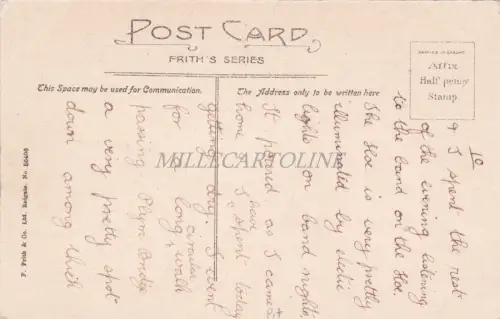 POST CARD
FRITH'S SERIES
This Space may be used for Communication.
The Address only to be written here
PRINTED IN SAXONY
Affix
Half penny
Stamp.
F. Frith & Co. Ltd. Reigate. No.
MILLECARTOLINE
10
9 I spent the rest
of the evening listening
to the band on the Hoe.
The Hoe is very prettily
illuminated by electric
lights on band nights.
It poured as I came
home. I have spent today
getting dry. I went
for a circular
long walk
passing Plym Bridge
a very pretty spot
down among thick